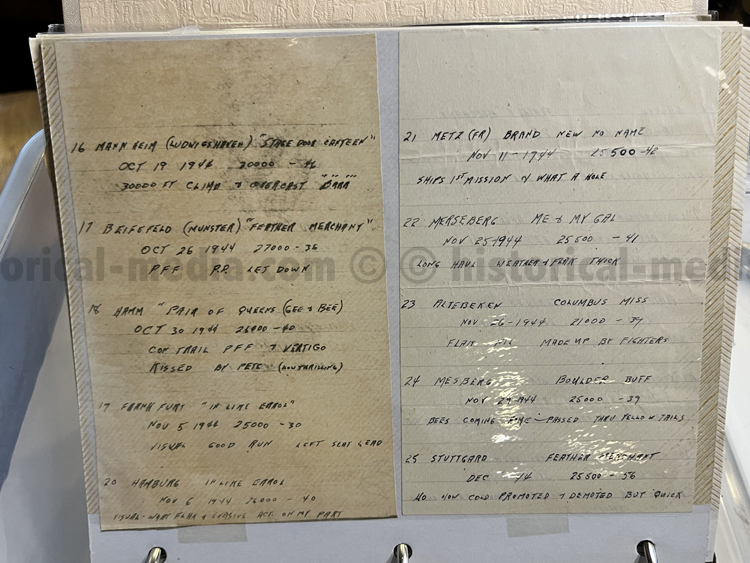 16 MANNHEIM (LUDWIGSHAVEN) "STAGE DOOR CANTEEN"
OCT 19 1944 30000 -42
30000 FT CLIMB & OVERCAST "BABA"
17 BEILEFELD (MUNSTER) "FEATHER MERCHANT"
OCT 26 1944 27000 -36
PFF RR LET DOWN
18 HAMM "PAIR OF QUEENS (GEE & BEE)
OCT 30 1944 26000 -40
CON TRAIL PFF & VERTIGO
KISSED BY PETE (HOW THRILLING)
19 FRANKFURT "IN LIKE ERROL"
NOV 5 1944 25000 -30
VISUAL GOOD RUN LEFT SEAT LEAD
20 HAMBURG IN LIKE ERROL
NOV 6 1944 26000 -40
VISUAL - WHAT FLAK & EVASIVE ACT. ON MY PART
21 METZ (FR) BRAND NEW NO NAME
NOV 11 - 1944 25500 -42
SHIPS 1ST MISSION & WHAT A HOLE
22 MERSEBERG ME & MY GAL
NOV 25-1944 25500 -41
LONG HAUL WEATHER & FLAK THICK
23 ALTEBEKEN COLUMBUS MISS
NOV -26-1944 21000 -39
FLAK MADE UP BY FIGHTERS
24 MESBERG BOULDER BUFF
NOV 29-1944 25000 -39
BEES COMING PASSED THRU YELLOW TAILS
25 STUTTGARD FEATHER MERCHANT
DEC 25500 -56
HO HOW COLD PROMOTED & DEMOTED BUT QUICK
historical-media.com © © historical-media